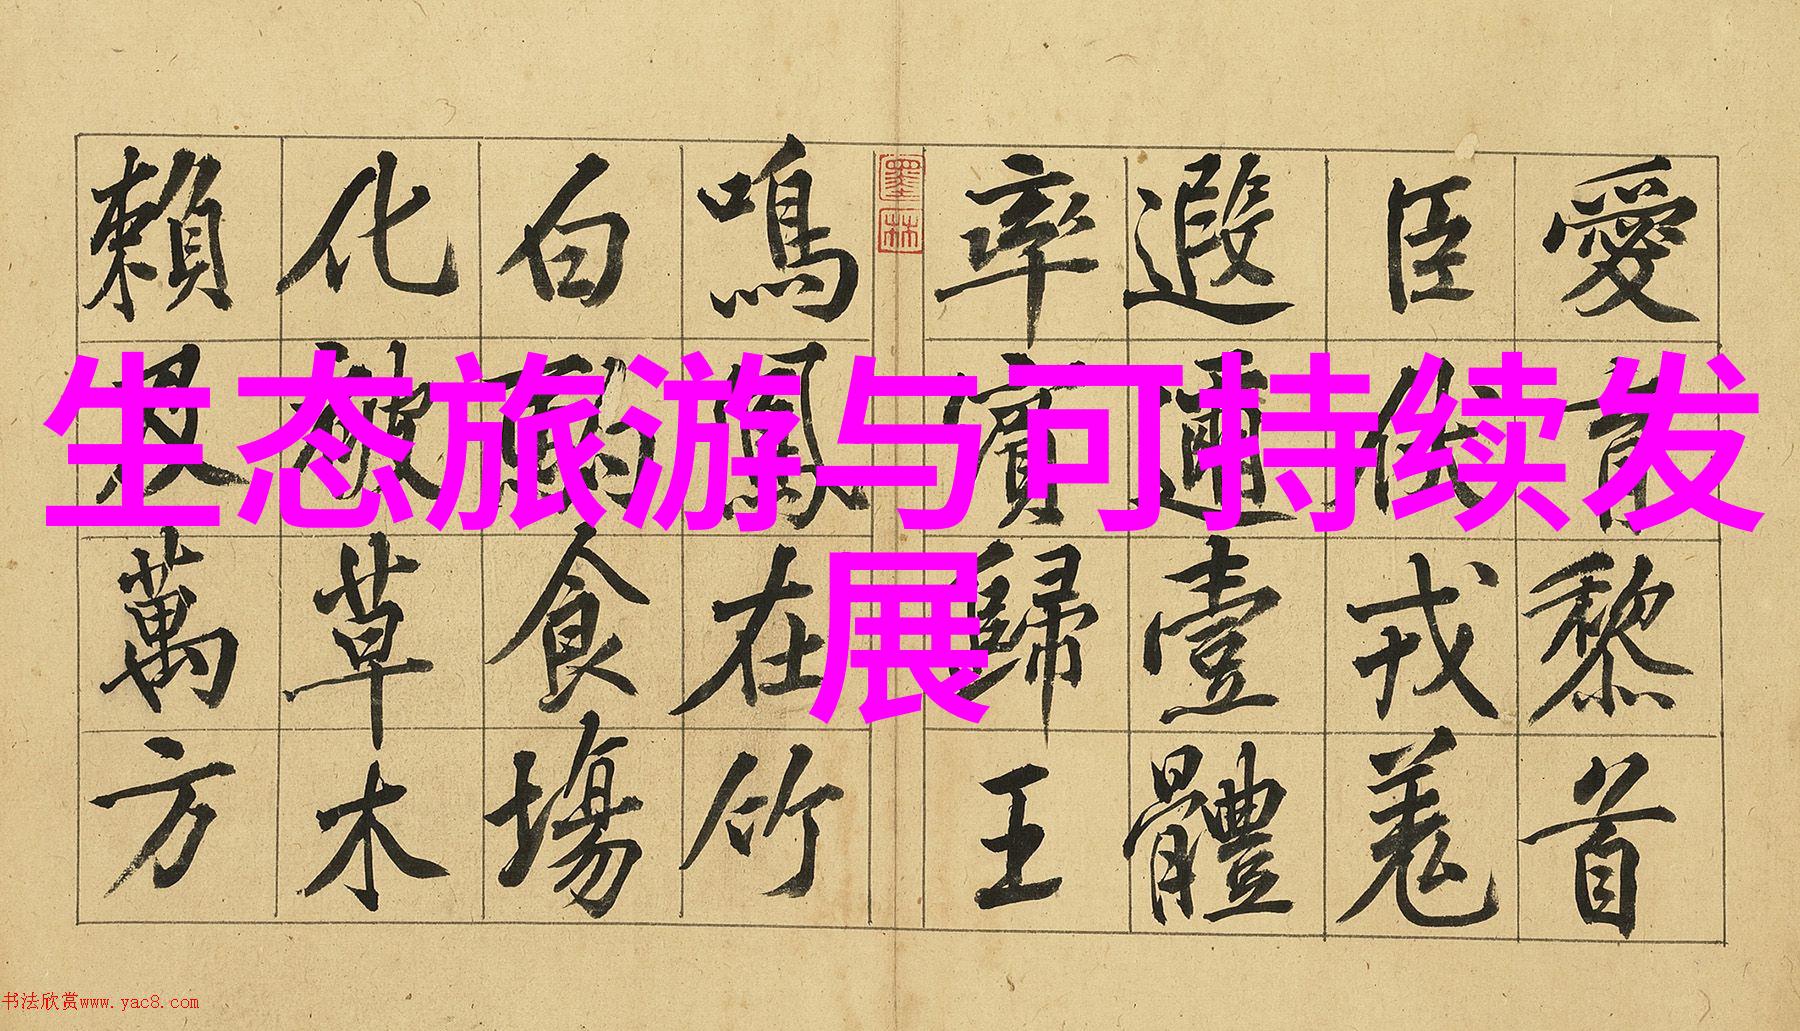 生态旅游与可持续发
展
愛育黎首
臣伏戎羌
遐邇壹體
率賓歸王
墨林
鳴鳳在竹
白駒食場
化被草木
賴及萬方
书法欣赏www.yac8.com